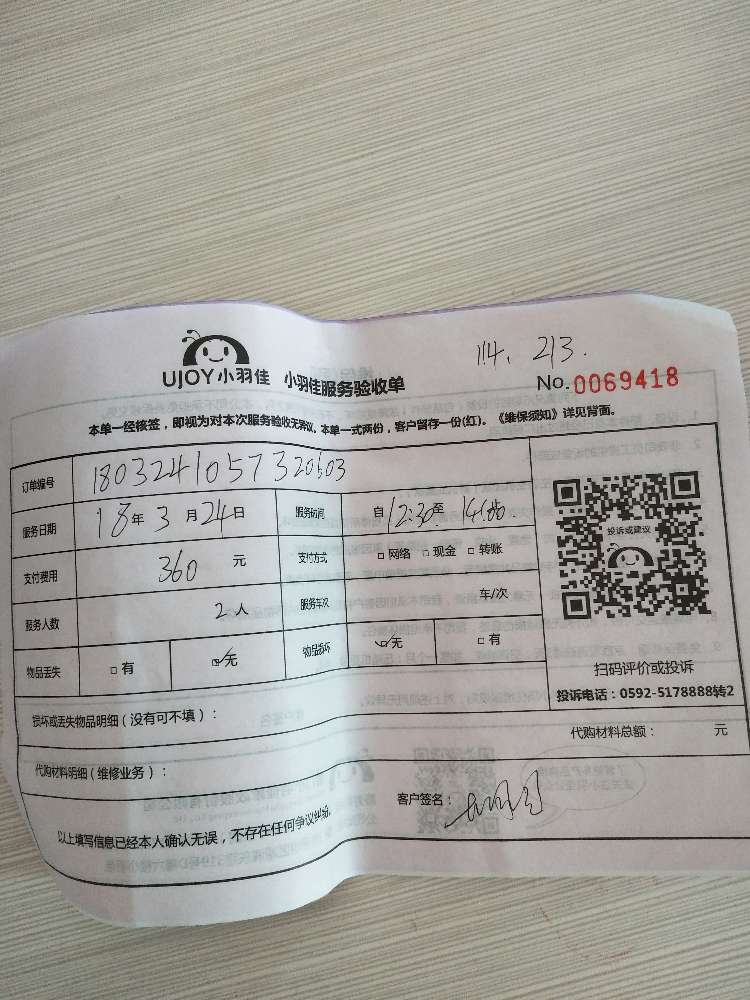 114. 213.
UJOY小羽佳 小羽佳服务验收单
No.0069418
本单一经核签，即视为对本次服务验收无异议。本单一式两份，客户留存一份(红)。《维保须知》详见背面。
订单编号 1803241057320603
服务日期 18年3月24日 服务时间 自12:30至
支付费用 360元 支付方式 □网络 □现金 □转账
服务人数 2人 服务车次 车/次
物品丢失 □有 ☑无 物品损坏 ☑无 □有
投诉或建议
扫码评价或投诉
投诉电话：0592-5178888转2
损坏或丢失物品明细（没有可不填）：
代购材料总额： 元
代购材料明细（维修业务）：
客户签名：
以上填写信息已经本人确认无误，不存在任何争议纠纷。